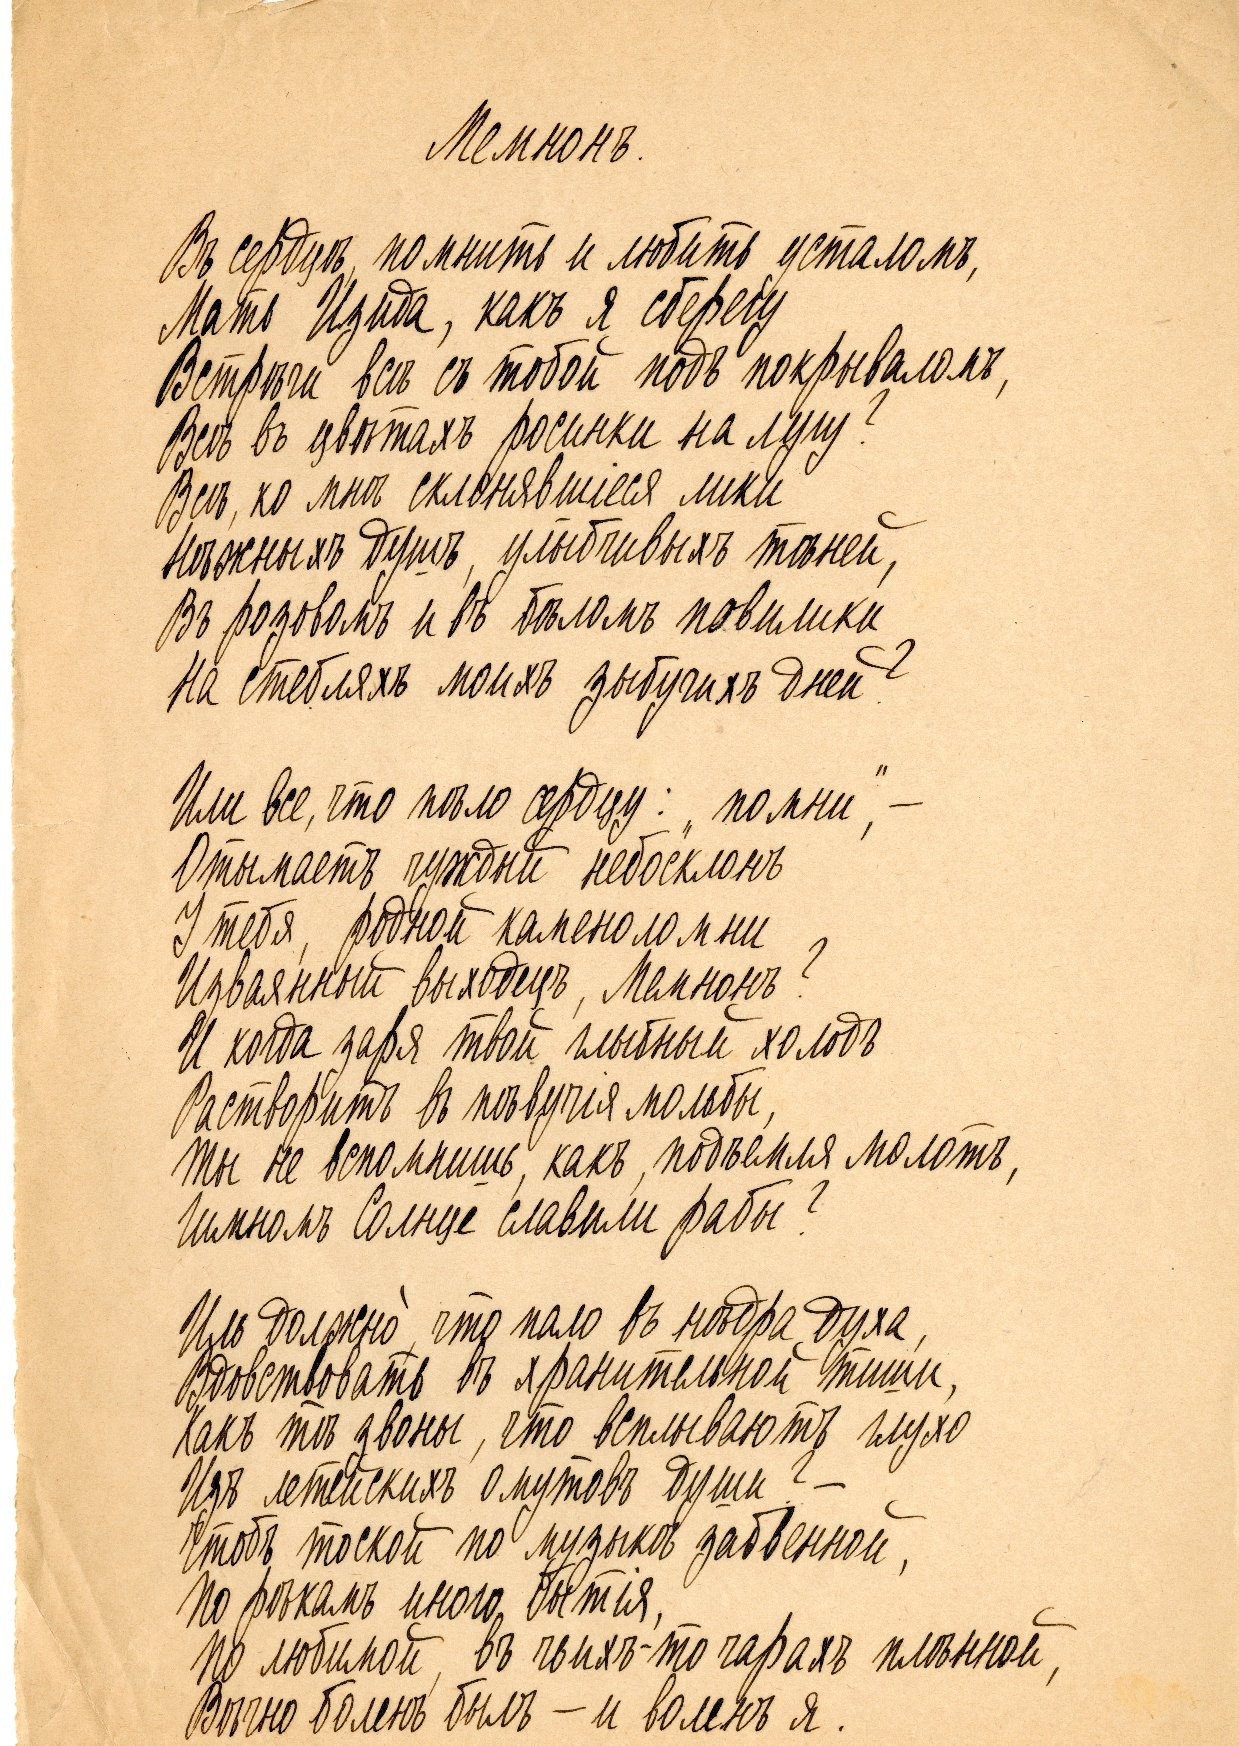 Мемнонъ.
Въ сердцѣ, помнить и любить усталомъ,
Мать Изида, какъ я сберегу
Встрѣчи всѣ съ тобой подъ покрываломъ,
Всѣ въ цвѣтахъ росинки на лугу?
Всѣ, ко мнѣ склонявшіеся лики
Нѣжныхъ душъ, улыбчивыхъ тѣней,
Въ розовомъ и въ бѣломъ повилики
На стебляхъ моихъ зыбучихъ дней?
Или все, что пѣло сердцу: „помни“, —
Отымаетъ чуждый небосклонъ
У тебя, родной каменоломни
Изваянный выходецъ, Мемнонъ?
И когда заря твой глыбный холодъ
Растворитъ въ пѣвучія мольбы,
Ты не вспомнишь, какъ, подъемля молотъ,
Гимномъ Солнце славили рабы?
Иль должно̀, что пало въ нѣдра духа,
Вдовствовать въ хранительной тиши,
Какъ тѣ звоны, что всплываютъ глухо
Изъ летейскихъ омутовъ души? —
Чтобъ тоской по музыкѣ забвенной,
По рѣкамъ иного бытія,
По любимой, въ чьихъ-то чарахъ плѣнной,
Вѣчно боленъ былъ — и воленъ я.